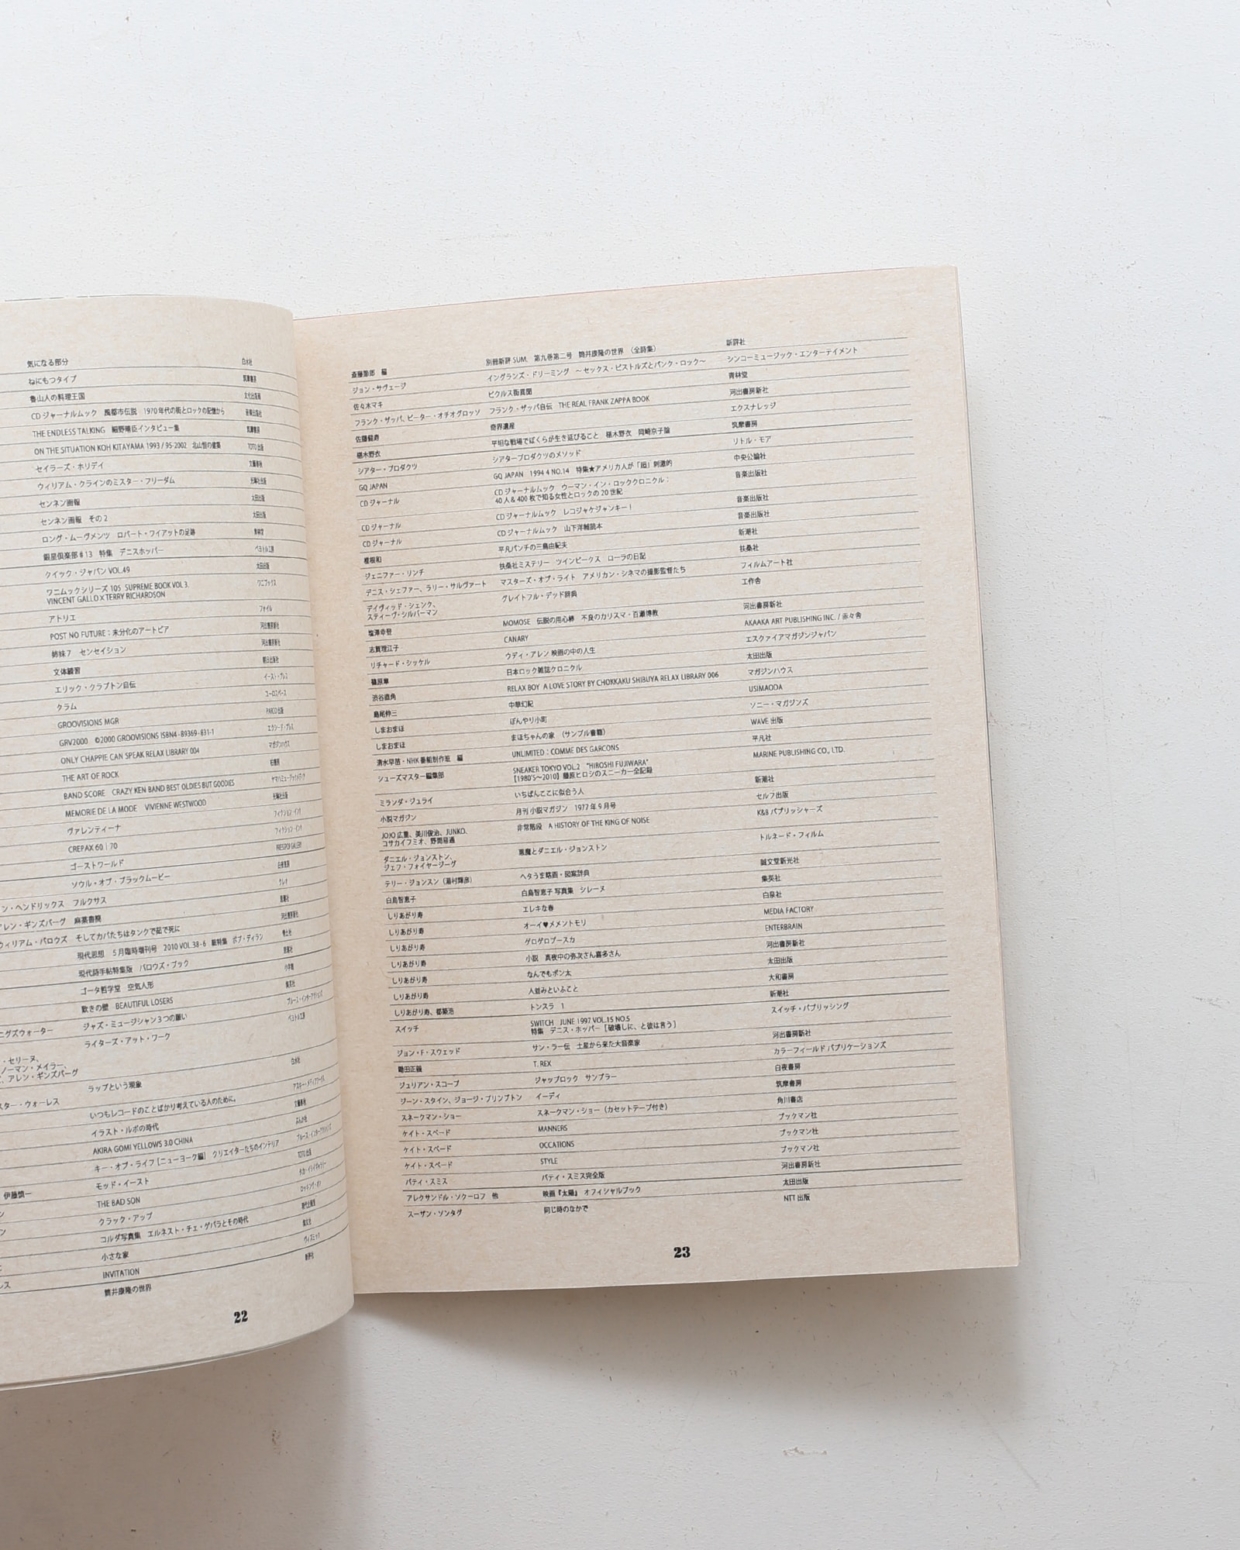 気になる部分 白水社
ねにもつタイプ 筑摩書房
魯山人の料理王国 文化出版局
CDジャーナルムック 魔都市伝説 1970年代の街とロックの記憶から 音楽出版社
THE ENDLESS TALKING 細野晴臣インタビュー集 筑摩書房
ON THE SITUATION KOH KITAYAMA 1993 / 95-2002 北山恒の建築 TOTO出版
セイラーズ・ホリデイ 文藝春秋
ウィリアム・クラインのミスター・フリーダム 光琳社出版
センネン画報 太田出版
センネン画報 その2 太田出版
ロング・ムーヴメンツ ロバート・ワイアットの足跡
銀星倶楽部#13 特集 デニスホッパー ペヨトル工房
クイック・ジャパン VOL.49 太田出版
ワニムックシリーズ105 SUPREME BOOK VOL 3. ワニブックス
VINCENT GALLO X TERRY RICHARDSON
アトリエ
POST NO FUTURE：未分化のアートピア 河出書房新社
姉妹7 センセイション 河出書房新社
文体練習 朝日出版社
エリック・クラプトン自伝 イースト・プレス
タラム
GROOVISIONS MGR PARCO出版
GRV2000 ©2000 GROOVISIONS ISBN4-89369-831-1
ONLY CHAPPIE CAN SPEAK RELAX LIBRARY 004 マガジンハウス
THE ART OF ROCK
BAND SCORE CRAZY KEN BAND BEST OLDIES BUT GOODIES
MEMORIE DE LA MODE VIVIENNE WESTWOOD 光琳社出版
ヴァレンティーナ
CREPAX 60｜70
ゴーストワールド
ソウル・オブ・ブラックムービー
ン・ヘンドリックス フルクサス
アレン・ギンズバーグ 麻薬書簡
ウィリアム・バロウズ そしてカバたちはタンクで茹で死に 河出書房新社
現代思想 5月臨時増刊号 2010 VOL.38-6 総特集 ボブ・ディラン 青土社
現代詩手帖特集版 バロウズ・ブック 思潮社
ゴータ哲学堂 空気人形 小学館
歎きの壁 BEAUTIFUL LOSERS 集英社
ニグズウォーター ジャズ・ミュージシャン3つの願い
ライターズ・アット・ワーク
・セリーヌ、
ノーマン・メイラー、
アレン・ギンズバーグ
ラップという現象 白水社
スター・ウォーレス
いつもレコードのことばかり考えている人のために。
イラスト・ルポの時代 文藝春秋
AKIRA GOMI YELLOWS 3.0 CHINA
キー・オブ・ライフ [ニューヨーク編] クリエイターたちのインテリア
伊藤慎一 モッド・イースト TOTO出版
THE BAD SON
クラック・アップ
コルダ写真集 エルネスト・チェ・ゲバラとその時代 現代企画室
小さな家 集文社
INVITATION
レス 筒井康隆の世界 新評社
22
斎藤憐 編 別冊新評 SUM. 第九巻第二号 筒井康隆の世界 〈全詩集〉 新評社
ジョン・サヴェージ イングランズ・ドリーミング ～セックス・ピストルズとパンク・ロック～ シンコーミュージック・エンターテイメント
佐々木マキ ピクルス街異聞 青林堂
フランク・ザッパ、ピーター・オチオグロッソ フランク・ザッパ自伝 THE REAL FRANK ZAPPA BOOK 河出書房新社
佐藤健寿 奇界遺産 エクスナレッジ
椹木野衣 平坦な戦場でぼくらが生き延びること 椹木野衣 岡崎京子論 筑摩書房
シアター・プロダクツ シアタープロダクツのメソッド リトル・モア
GQ JAPAN GQ JAPAN 1994 4 NO.14 特集★アメリカ人が「超」刺激的 中央公論社
CDジャーナル CDジャーナルムック ウーマン・イン・ロッククロニクル： 音楽出版社
40人＆400枚で知る女性とロックの20世紀
CDジャーナル CDジャーナルムック レコジャケジャンキー！ 音楽出版社
CDジャーナル CDジャーナルムック 山下洋輔読本 音楽出版社
椎根和 平凡パンチの三島由紀夫 新潮社
ジェニファー・リンチ 扶桑社ミステリー ツインピークス ローラの日記 扶桑社
デニス・シェファー、ラリー・サルヴァート マスターズ・オブ・ライト アメリカン・シネマの撮影監督たち フィルムアート社
デイヴィッド・シェンク、 グレイトフル・デッド辞典 工作舎
スティーヴ・シルバーマン
塩澤幸登 MOMOSE 伝説の用心棒 不良のカリスマ・百瀬博教 河出書房新社
志賀理江子 CANARY AKAAKA ART PUBLISHING INC. / 赤々舎
リチャード・シッケル ウディ・アレン 映画の中の人生 エスクァイアマガジンジャパン
篠原章 日本ロック雑誌クロニクル 太田出版
渋谷直角 RELAX BOY A LOVE STORY BY CHOKKAKU SHIBUYA RELAX LIBRARY 006 マガジンハウス
島尾伸三 中華幻紀 USIMAODA
しまおまほ ぼんやり小町 ソニー・マガジンズ
しまおまほ まほちゃんの家 （サンプル書籍） WAVE出版
清水早苗・NHK番組制作班 編 UNLIMITED：COMME DES GARCONS 平凡社
シューズマスター編集部 SNEAKER TOKYO VOL.2 “HIROSHI FUJIWARA” MARINE PUBLISHING CO., LTD.
【1980'S～2010】藤原ヒロシのスニーカー全記録
ミランダ・ジュライ いちばんここに似合う人 新潮社
小説マガジン 月刊小説マガジン 1977年9月号 セルフ出版
JOJO広重、美川俊治、JUNKO、 非常階段 A HISTORY OF THE KING OF NOISE K&Bパブリッシャーズ
コサカイフミオ、野間易通
ダニエル・ジョンストン、 悪魔とダニエル・ジョンストン トルネード・フィルム
ジェフ・フォイヤージーグ
テリー・ジョンスン（湯村輝彦） ヘタうま略画・図案辞典 誠文堂新光社
白鳥智恵子 白鳥智恵子 写真集 シレーヌ 集英社
しりあがり寿 エレキな春 白泉社
しりあがり寿 オーイ♥メメントモリ MEDIA FACTORY
しりあがり寿 ゲロゲロプースカ ENTERBRAIN
しりあがり寿 小説 真夜中の弥次さん喜多さん 河出書房新社
しりあがり寿 なんでもポン太 太田出版
しりあがり寿 人並みといふこと 大和書房
しりあがり寿、都築浩 トンスラ 1 新潮社
スイッチ SWITCH JUNE 1997 VOL.15 NO.5 スイッチ・パブリッシング
特集 デニス・ホッパー [破壊しに、と彼は言う]
ジョン・F・スウェッド サン・ラー伝 土星から来た大音楽家 河出書房新社
鋤田正義 T. REX カラーフィールドパブリケーションズ
ジュリアン・スコープ ジャップロック サンプラー 白夜書房
ジーン・スタイン、ジョージ・プリンプトン イーディ 筑摩書房
スネークマン・ショー スネークマン・ショー（カセットテープ付き） 角川書店
ケイト・スペード MANNERS ブックマン社
ケイト・スペード OCCATIONS ブックマン社
ケイト・スペード STYLE ブックマン社
パティ・スミス パティ・スミス完全版 河出書房新社
アレクサンドル・ソクーロフ 他 映画『太陽』 オフィシャルブック 太田出版
スーザン・ソンタグ 同じ時のなかで NTT出版
23